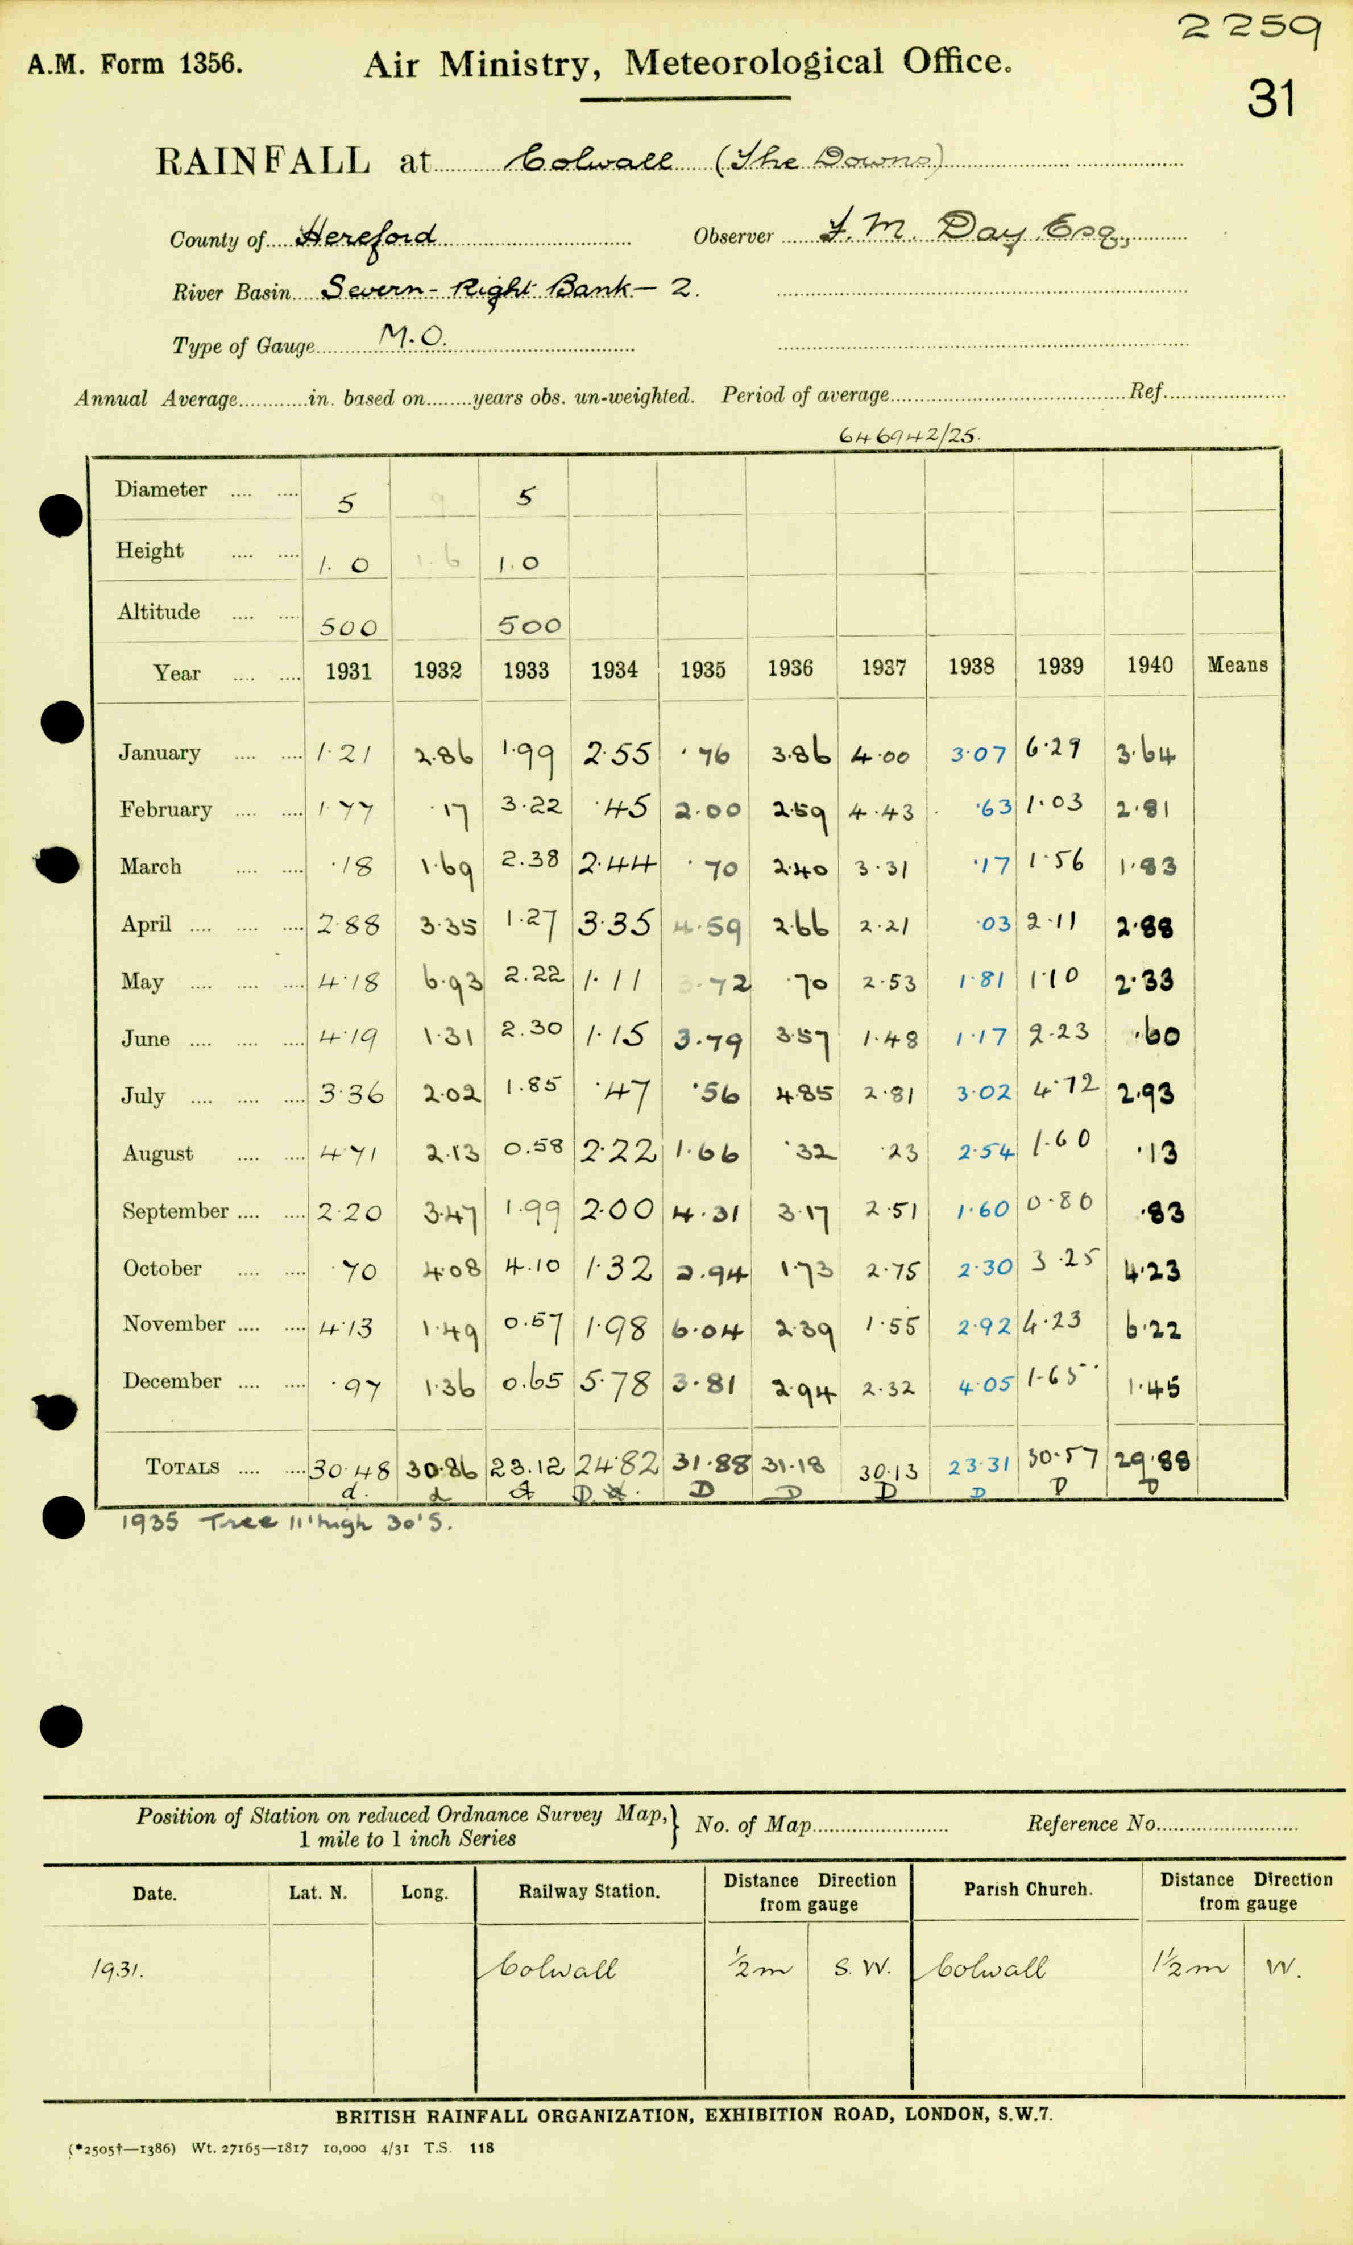 2259
A.M. Form 1356. Air Ministry, Meteorological Office.
31
RAINFALL at Colwall (The Downs)
County of Hereford Observer F. M. Day Esq.,
River Basin Severn - Right Bank - 2.
Type of Gauge M.O.
Annual Average in. based on years obs. un-weighted. Period of average Ref.
646942/25.
Diameter 5 9 5
Height 1.0 1.6 1.0
Altitude 500 500
Year 1931 1932 1933 1934 1935 1936 1937 1938 1939 1940 Means
January 1.21 2.86 1.99 2.55 .76 3.86 4.00 3.07 6.29 3.64
February 1.77 .17 3.22 .45 2.00 2.59 4.43 .63 1.03 2.81
March .18 1.69 2.38 2.44 .70 2.40 3.31 .17 1.56 1.83
April 2.88 3.35 1.27 3.35 4.59 2.66 2.21 .03 2.11 2.88
May 4.18 6.93 2.22 1.11 .72 .70 2.53 1.81 1.10 2.33
June 4.19 1.31 2.30 1.15 3.79 3.57 1.48 1.17 2.23 .60
July 3.36 2.02 1.85 .47 .56 4.85 2.81 3.02 4.72 2.93
August 4.71 2.13 0.58 2.22 1.66 .32 .23 2.54 1.60 .13
September 2.20 3.47 1.99 2.00 4.31 3.17 2.51 1.60 0.80 .83
October .70 4.08 4.10 1.32 2.94 1.73 2.75 2.30 3.25 4.23
November 4.13 1.49 0.57 1.98 6.04 2.39 1.55 2.92 4.23 6.22
December .97 1.36 0.65 5.78 3.81 2.94 2.32 4.05 1.65 1.45
TOTALS 30.48 30.86 23.12 24.82 31.88 31.18 30.13 23.31 30.57 29.88
d. d d D. d. D D D D D D
1935 Tree 11' high 30' S.
Position of Station on reduced Ordnance Survey Map, 1 mile to 1 inch Series } No. of Map Reference No.
Date. Lat. N. Long. Railway Station. Distance Direction from gauge Parish Church. Distance Direction from gauge
1931. Colwall ½ m S.W. Colwall 1½ m W.
BRITISH RAINFALL ORGANIZATION, EXHIBITION ROAD, LONDON, S.W.7.
(*2505†—1386) Wt. 27165—1817 10,000 4/31 T.S. 118